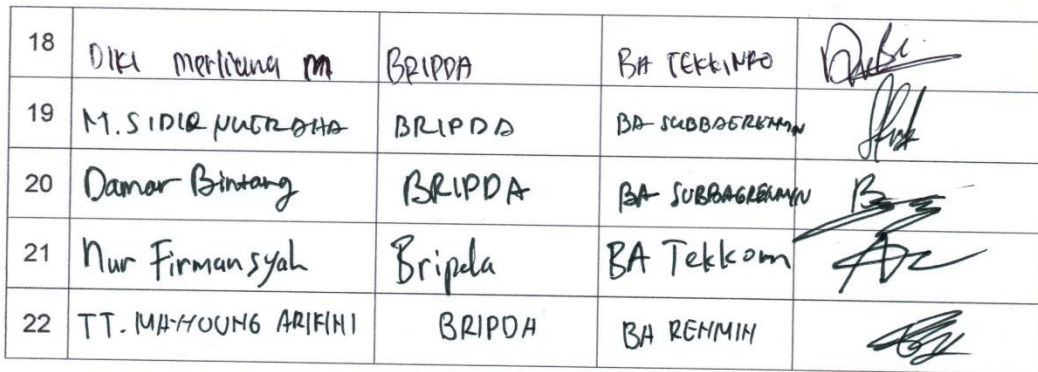 18 DIKI merliana m BRIPDA BA TEKKINFO
19 M. SIDIQ NUGRAHA BRIPDA BA SUBBAGRENMIN
20 Damar Bintang BRIPDA BA SUBBAGRENMIN
21 Nur Firmansyah Bripda BA Tekkom
22 TT. ARIFINI BRIPDA BA RENMIN